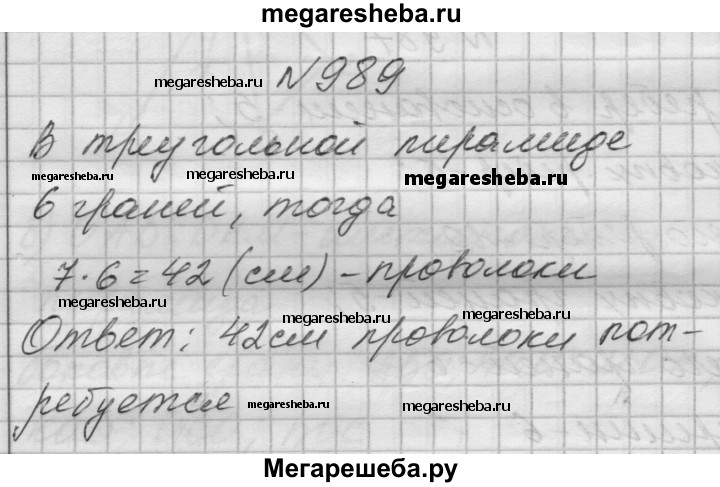 megaresheba.ru
megaresheba.ru №989
В треугольной пирамиде
megaresheba.ru megaresheba.ru megaresheba.ru
6 граней, тогда
7·6=42 (см) - проволоки
megaresheba.ru megaresheba.ru megaresheba.ru
Ответ: 42см проволоки пот-
ребуется megaresheba.ru megaresheba.ru
Мегарешеба.ру